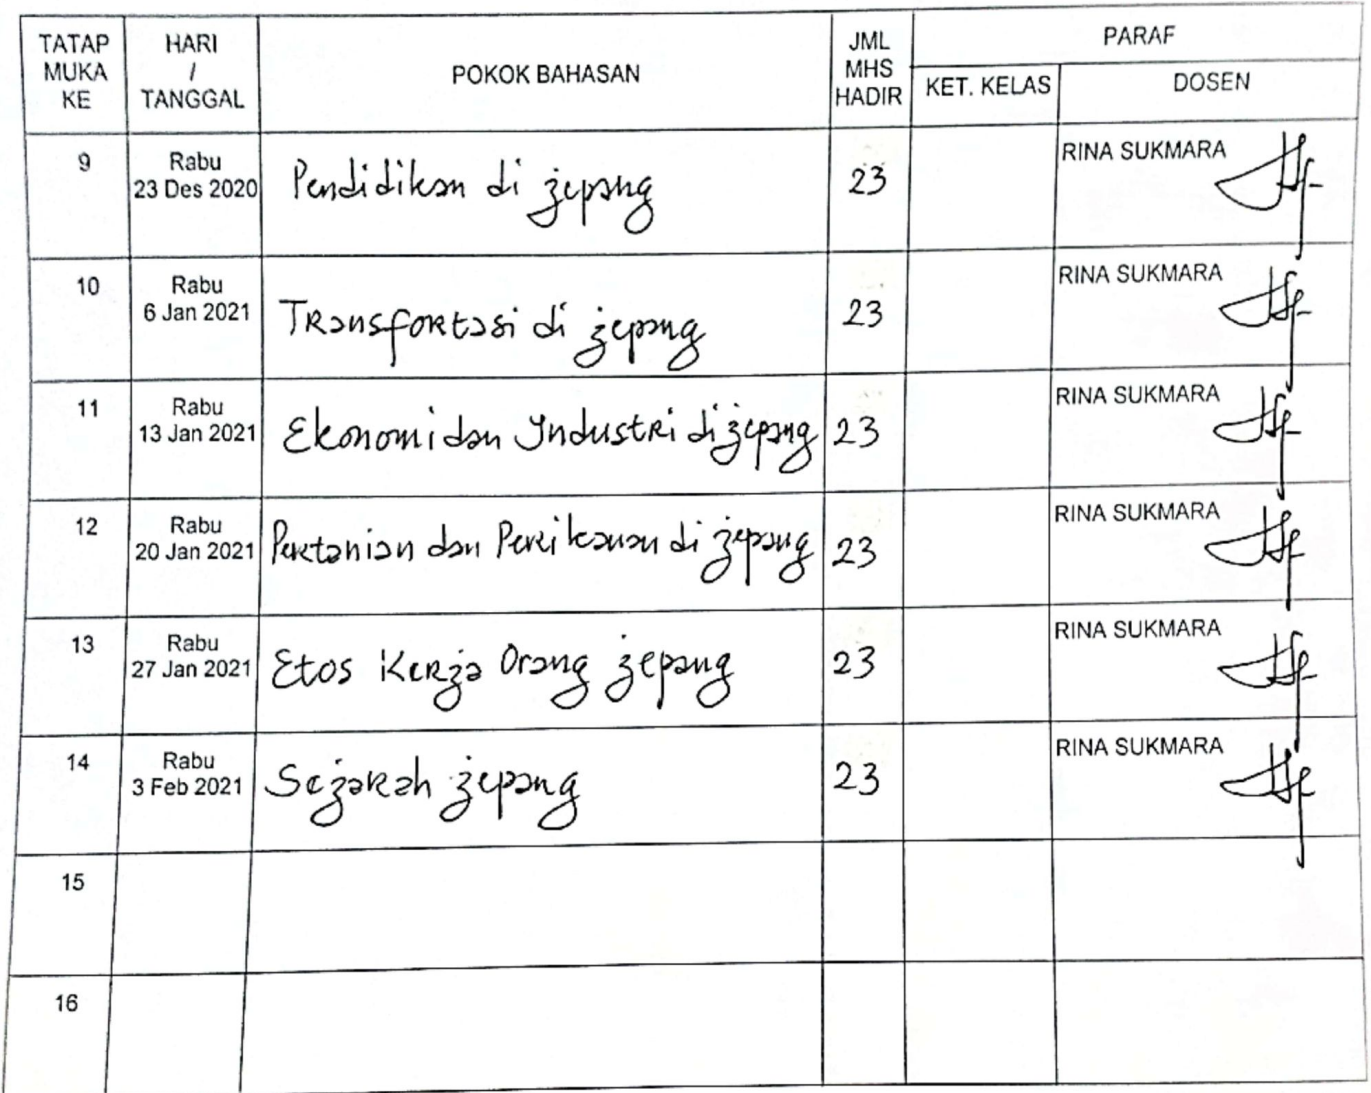 TATAP MUKA KE
HARI / TANGGAL
POKOK BAHASAN
JML MHS HADIR
PARAF
KET. KELAS
DOSEN
9
Rabu
23 Des 2020
Pendidikan di jepang
23
RINA SUKMARA
10
Rabu
6 Jan 2021
TRansfoRtasi di jepang
23
RINA SUKMARA
11
Rabu
13 Jan 2021
Ekonomi dan IndustRi di jepang
23
RINA SUKMARA
12
Rabu
20 Jan 2021
PeRtanian dan Perikanan di jepang
23
RINA SUKMARA
13
Rabu
27 Jan 2021
Etos KeRja Orang jepang
23
RINA SUKMARA
14
Rabu
3 Feb 2021
SejaRah jepang
23
RINA SUKMARA
15
16